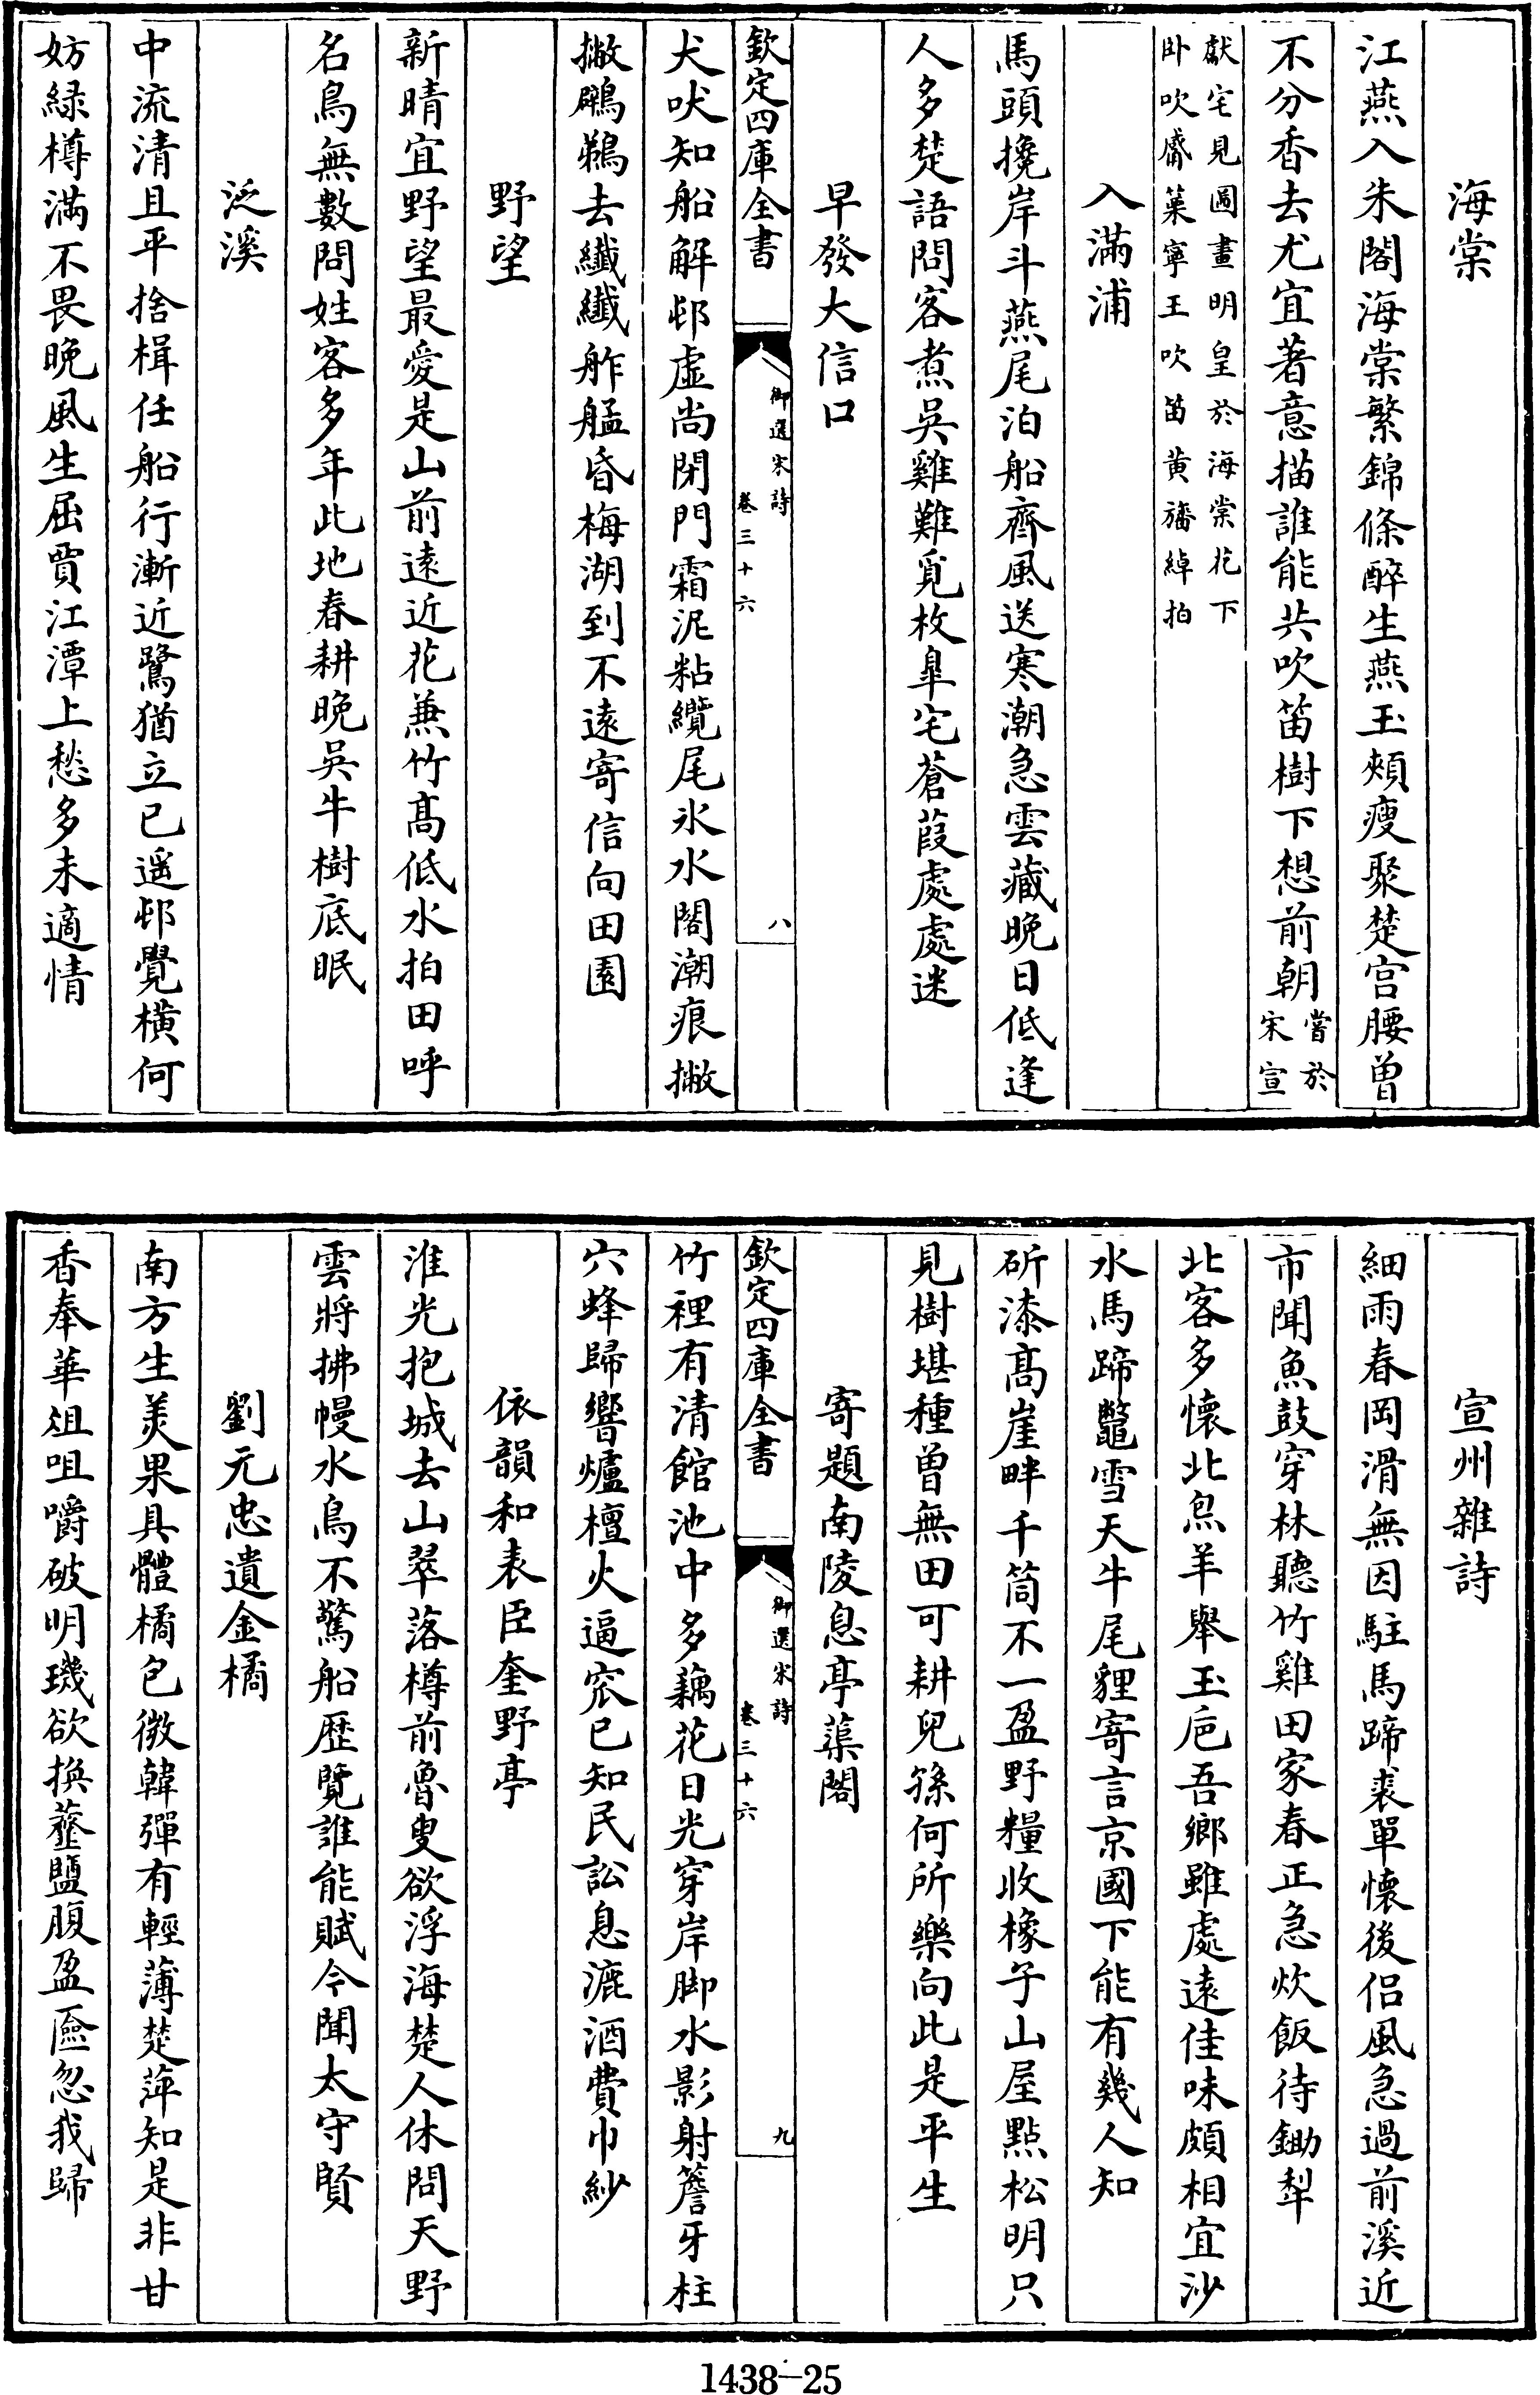 海棠
江燕入朱閣海棠繁錦條醉生燕玉頰瘦聚楚宫腰曽
不分香去尤宜著意描誰能共吹笛樹下想前朝嘗於宋宣
獻宅見圖畫明皇於海棠花下
卧吹觱篥寧王吹笛黄旛綽拍
入滿浦
馬頭攙岸斗燕尾泊船齊風送寒潮急雲藏晚日低逢
人多楚語問客煮吳雞難覓枚臯宅蒼葭處處迷
早發大信口
欽定四庫全書
御選宋詩
卷三十六
八
犬吠知船解邨虛尚閉門霜泥粘纜尾氷水閣潮痕撇
撇鸊鵜去纖纖舴艋昏梅湖到不遠寄信向田園
野望
新晴宜野望最愛是山前遠近花兼竹髙低水拍田呼
名鳥無數問姓客多年此地春耕晚吳牛樹底眠
泛溪
中流清且平捨楫任船行漸近鷺猶立已遥邨覺橫何
妨緑樽滿不畏晚風生屈賈江潭上愁多未適情
宣州雜詩
細雨春岡滑無因駐馬蹄裘單懐後侣風急過前溪近
市聞魚鼓穿林聽竹雞田家春正急炊飯待鋤犁
北客多懐北炰羊舉玉巵吾鄉雖處逺佳味頗相宜沙
水馬蹄鼈雪天牛尾貍寄言京國下能有幾人知
斫漆髙崖畔千筒不一盈野糧收橡子山屋㸃松明只
見樹堪種曽無田可耕兒孫何所樂向此是平生
寄題南陵息亭蕖閣
欽定四庫全書
御選宋詩
卷三十六
九
竹裡有清館池中多藕花日光穿岸脚水影射簷牙柱
穴蜂歸響爐檀火逼窊已知民訟息漉酒費巾紗
依韻和表臣奎野亭
淮光抱城去山翠落樽前魯叟欲浮海楚人休問天野
雲將拂幔水鳥不驚船歴覽誰能賦今聞太守賢
劉元忠遺金橘
南方生美果具體橘包微韓彈有輕薄楚萍知是非甘
香奉華俎咀嚼破明璣欲換虀鹽腹盈匳忽我歸
1438-25